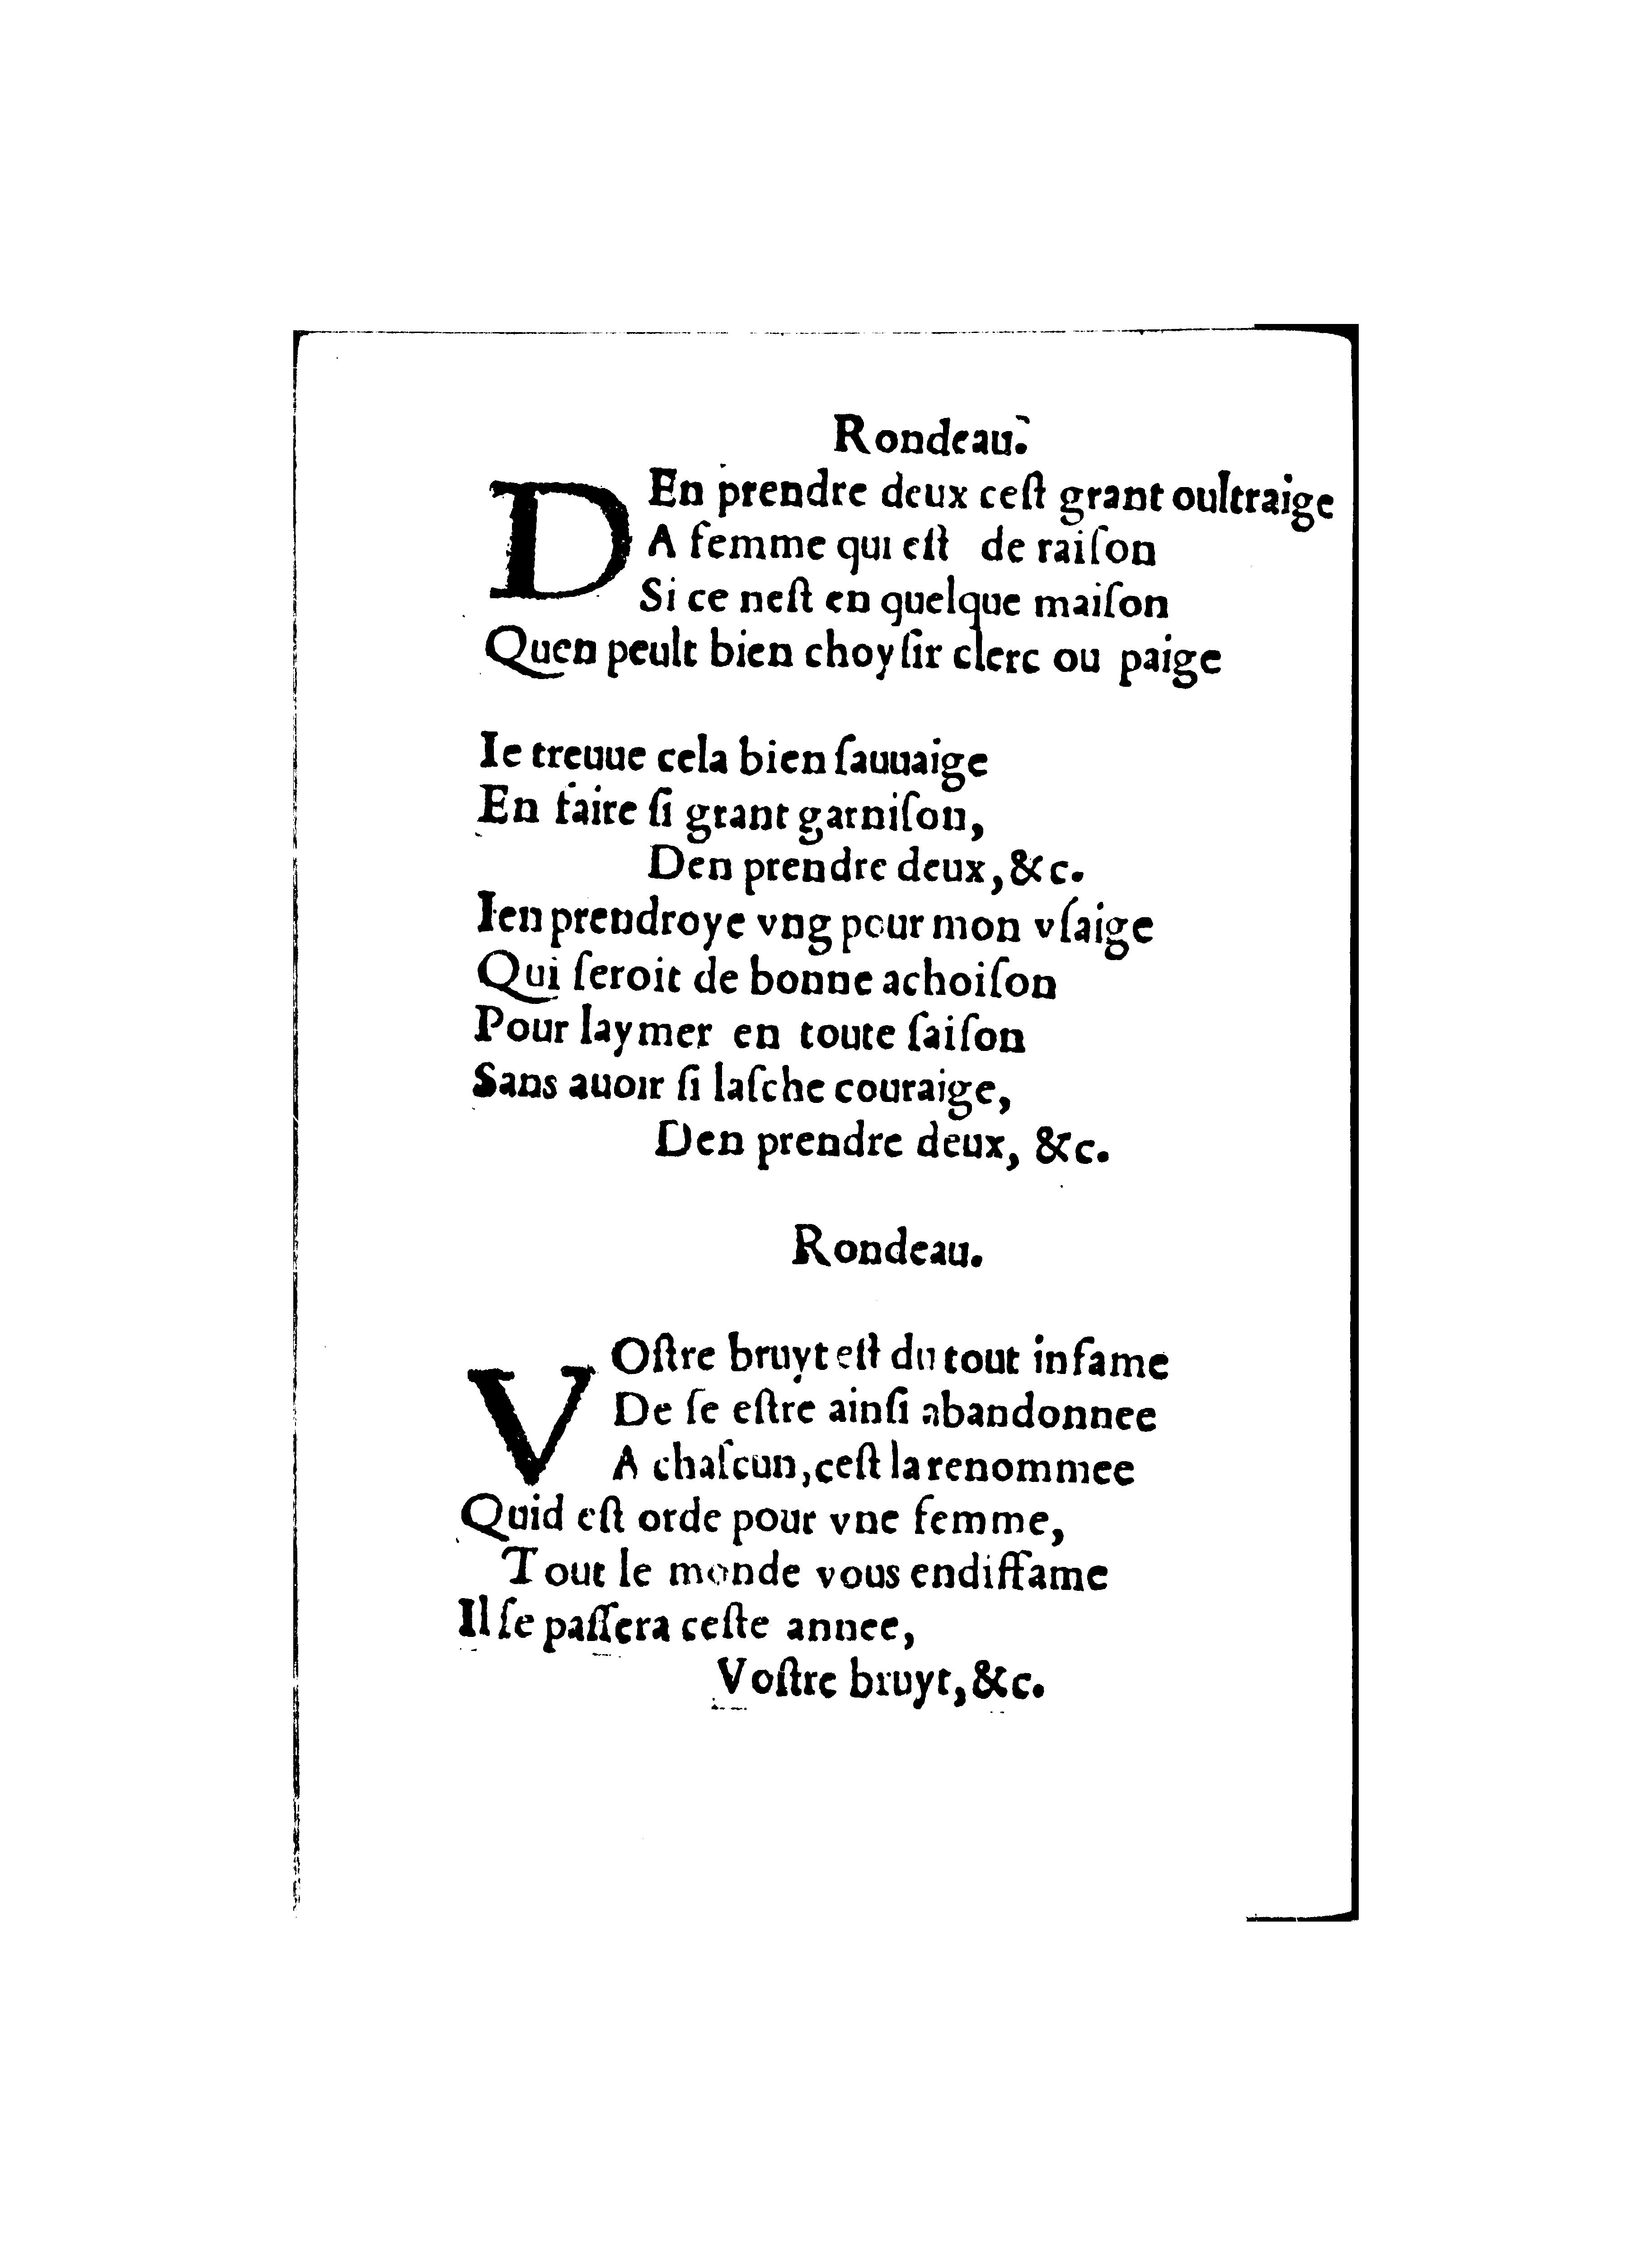 Rondeau.
DEn prendre deux ceſt grant oultraige
A femme qui eſt de raiſon
Si ce neſt en quelque maiſon
Quen peult bien choyſir clerc ou paige
Ie treuue cela bien ſauuaige
En faire ſi grant garniſon,
Den prendre deux, &c.
Ien prendroye vng pour mon vſaige
Qui ſeroit de bonne achoiſon
Pour laymer en toute ſaiſon
Sans auoir ſi laſche couraige,
Den prendre deux, &c.
Rondeau.
VOſtre bruyt eſt du tout infame
De ſe eſtre ainſi abandonnee
A chaſcun, ceſt la renommee
Quid eſt orde pour vne femme,
Tout le monde vous endiffame
Il ſe paſſera ceſte annee,
Voſtre bruyt, &c.